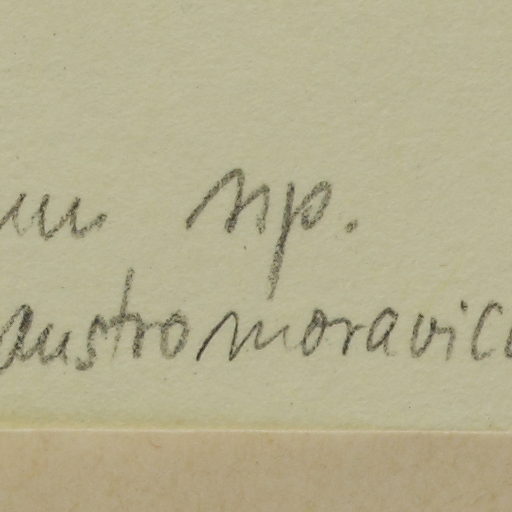 um sp.
austromoravico